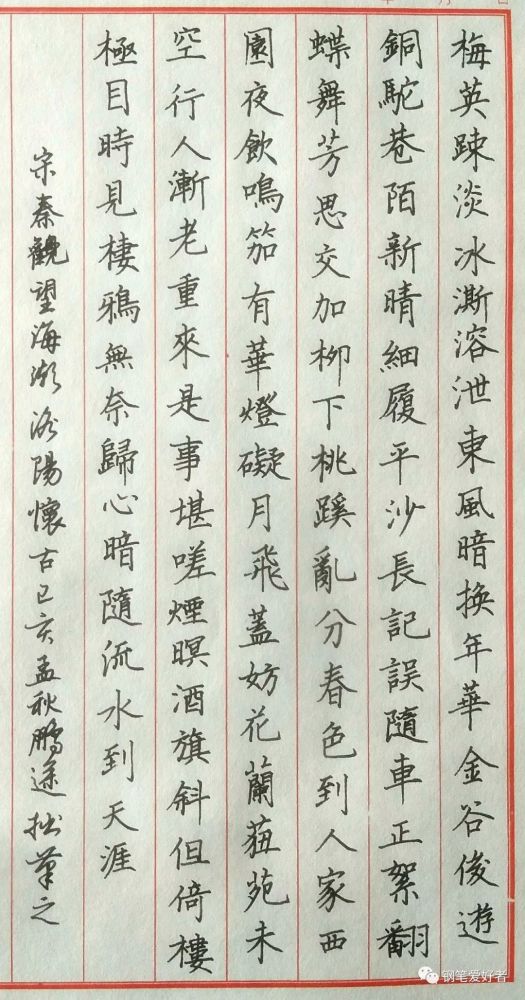 梅英踈淡冰澌溶泄東風暗換年華金谷俊遊
銅駝巷陌新晴細履平沙長記誤隨車正絮翻
蝶舞芳思交加柳下桃蹊亂分春色到人家西
園夜飲鳴笳有華燈礙月飛蓋妨花蘭苑未
空行人漸老重來是事堪嗟煙暝酒旗斜但倚樓
極目時見棲鴉無奈歸心暗隨流水到天涯
宋秦觀望海潮洛陽懷古己亥孟秋鵬途拙筆之
钢笔爱好者